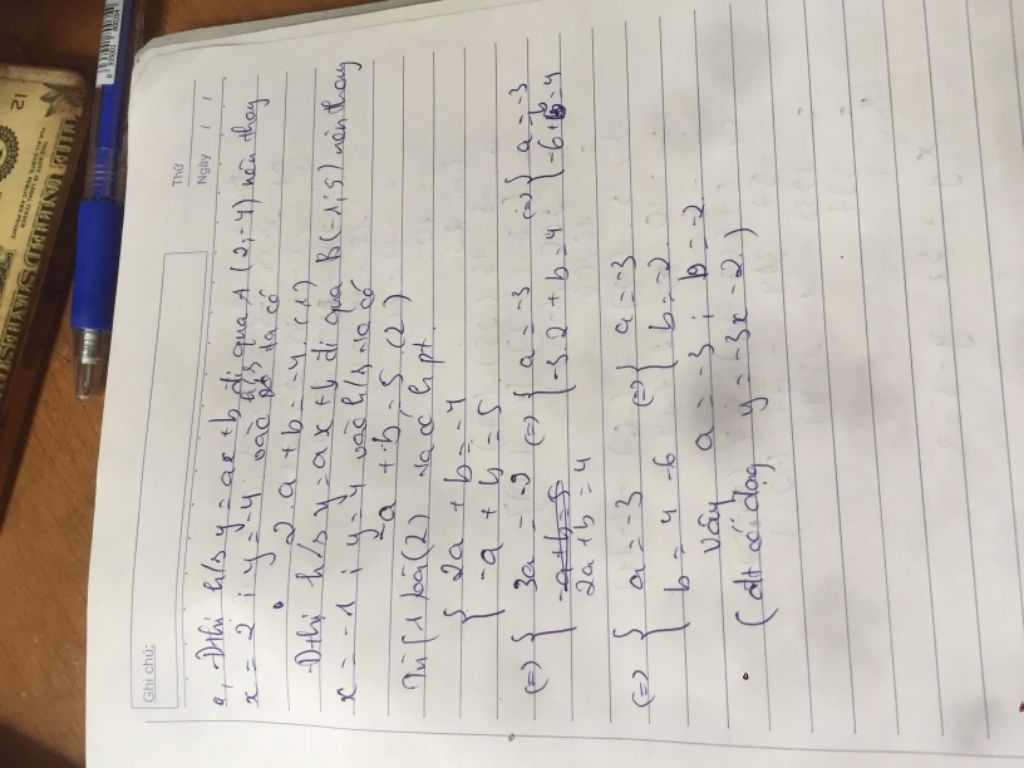 Ghi chú:
Thứ
Ngày / /
a, Đthị h/s y = ax + b đi qua A (2; -4) nên thay
x = 2 ; y = -4 vào h/s ta có
2. a + b = -4 (1)
- Đthị h/s y = ax + b đi qua B (-1; 5) nên thay
x = -1 ; y = 4 vào h/s ta có
-a + b = 5 (2)
Từ (1) và (2) ta có hpt
{ 2a + b = -4
{ -a + b = 5
(=) { 3a = -9 (=) { a = -3 (=) { a = -3
{ -a+b=5 { -3.2 + b = 4 { -6 + b = 4
2a + b = 4
(=) { a = -3 (=) { a = -3
{ b = 4 - 6 { b = -2
Vậy a = -3 ; b = -2
(đt có dạng y = -3x - 2)
12